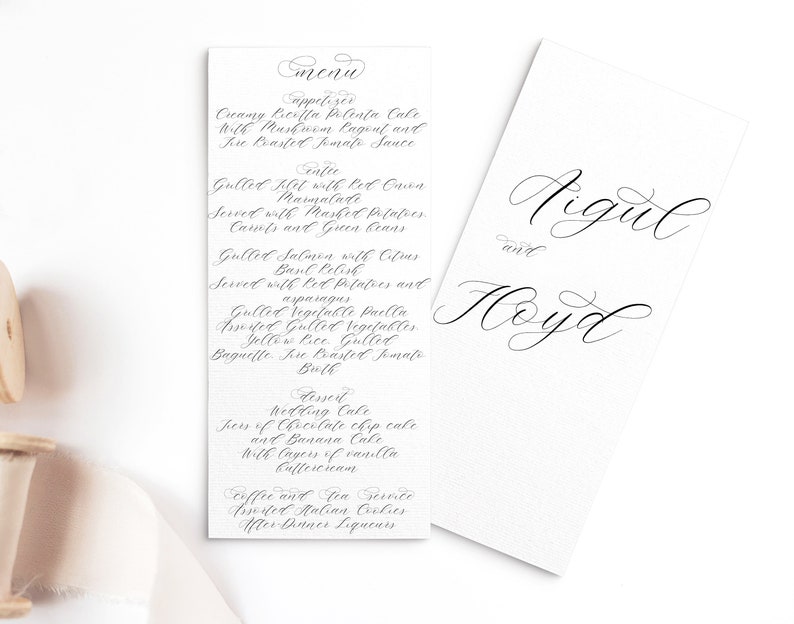 menu
appetizer
Creamy Ricotta Polenta Cake
With Mushroom Ragout and
Fire Roasted Tomato Sauce
entée
Grilled Filet with Red Onion
Marmalade
Served with Mashed Potatoes,
Carrots and Green beans
Grilled Salmon with Citrus
Basil Relish
Served with Red Potatoes and
asparagus
Grilled Vegetable Paella
Assorted Grilled Vegetables,
Yellow Rice, Grilled
Baguette, Fire Roasted Tomato
Broth
dessert
Wedding Cake
Tiers of Chocolate chip cake
and Banana Cake
With layers of vanilla
buttercream
coffee and Tea Service
Assorted Italian Cookies
After-Dinner Liqueurs
Aigul
and
Floyd